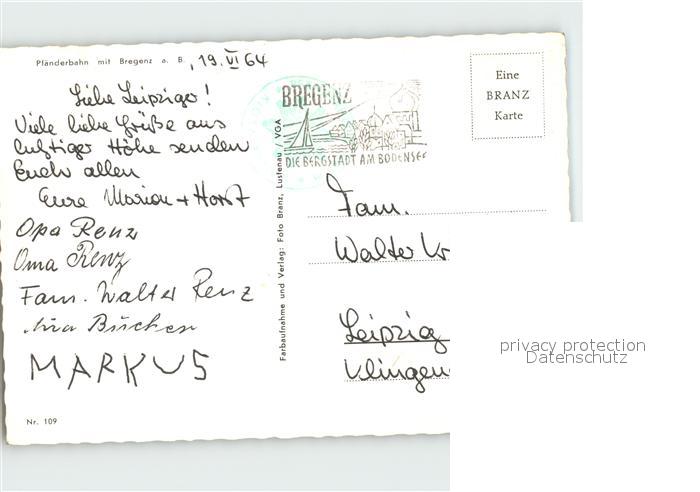 Pfänderbahn mit Bregenz a. B., 19. VI 64
Liebe Leipziger!
Viele liebe Grüße aus
luftiger Höhe senden
Euch allen
Eure Marion + Horst
Opa Renz
Oma Renz
Fam. Walter Renz
Bücher
MARKUS
Nr. 109
Farbaufnahme und Verlag: Foto Branz, Lustenau / VGA
BREGENZ
DIE BERGSTADT AM BODENSEE
Eine
BRANZ
Karte
Fam.
Walter Kr
Leipzig
Klingen
privacy protection
Datenschutz